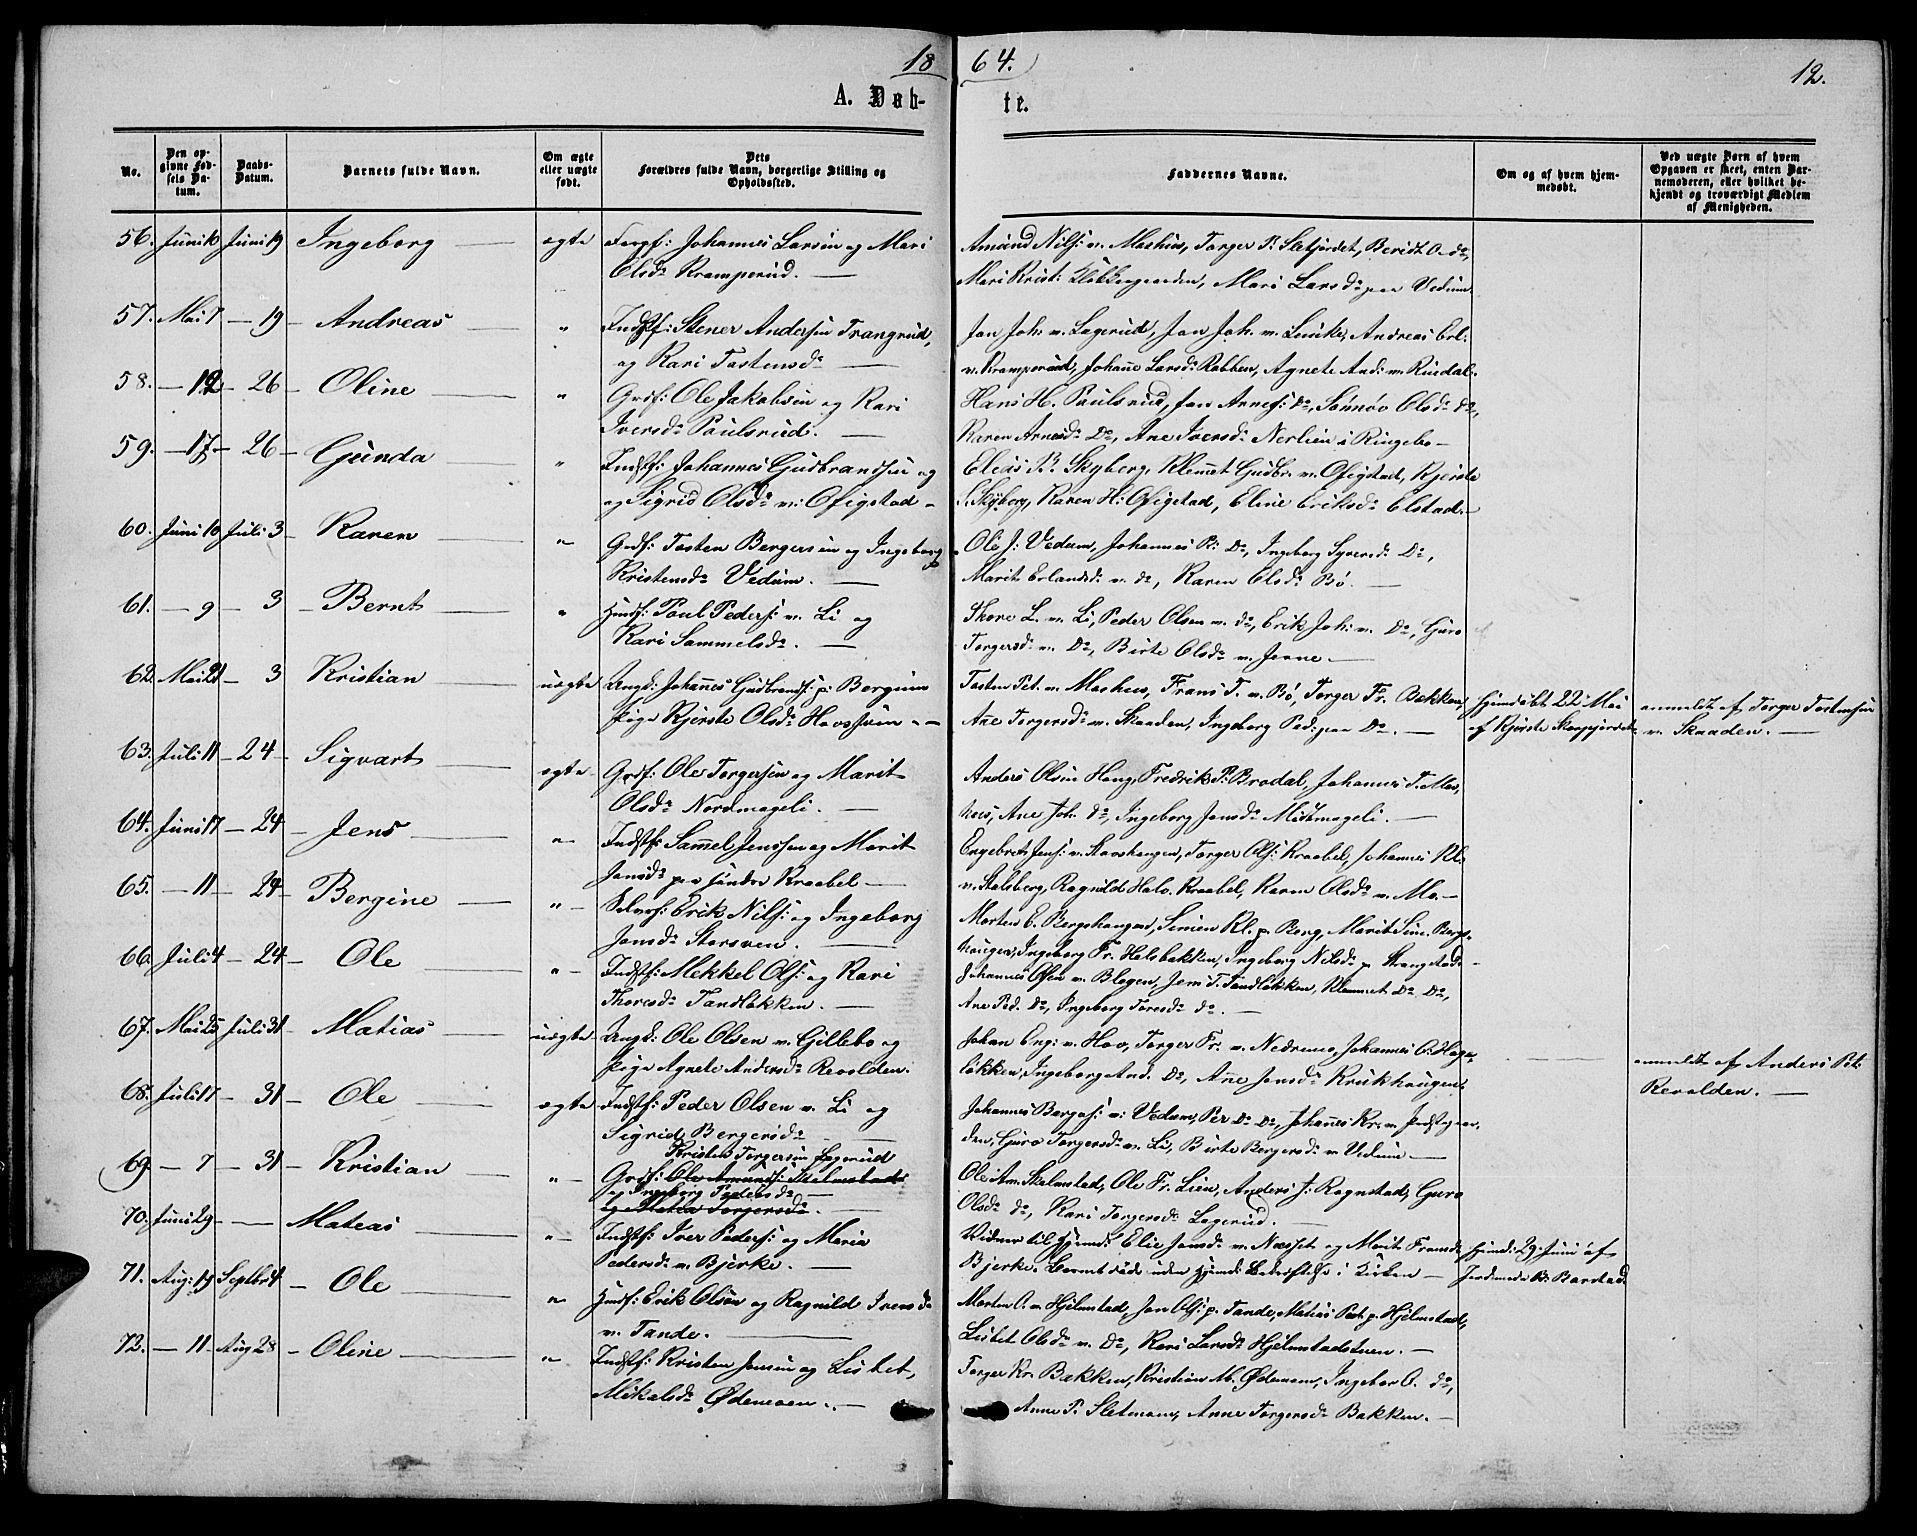 18 64.
12.
A. Døb- te.
No.
Den op-
givne Fød-
sels Da-
tum.
Daabs-
Datum.
Barnets fulde Navn.
Om ægte
eller uægte
født.
Dets
Forældres fulde Navn, borgerlige Stilling og
Opholdssted.
Faddernes Navne.
Om og af hvem hjem-
medøbt.
Ved uægte Børn af hvem
Opgaven er skeet, enten Bar-
nemoderen, eller hvilket be-
kjendt og troværdigt Medlem
af Menigheden.
56. Juni 10 Juni 19 Ingeborg ægte
Johannes Larsen og Mari
Olsdr Kramperud.
Amund Nilss: v. Moshus, Torger P. Sletjordet, Beridt O. do,
Mari Krist. Klokkergaarden, Mari Larsdr paa Vedum.
57. Mai 7 - 19 - Andreas "
Indstf: Stener Andersen Trangrud,
og Kari Tostensdr
Jon Joh. v. Lagerud, Jon Joh. v. Andreas Erl.
v. Kramperud, Johane Larsdr Robben, Agnete And. v.
58. - 12 - 26 - Oline "
Grdf: Ole Jakobsen og Kari
Iversdr Paulsrud.
Hans H. Paulsrud, Jon Arnes: do, Olsdr do,
Karen Arnesdr Do, Ane Iversdr Nerlien i Ringebo -
59. - 17 - 26 - Gunda "
Indstf: Johannes Gudbrandsen og
og Sigrid Olsdr v: Ofigstad -
Elias P. Skyberg, Klemet Gudbr. v. Ofigstad, Kjerste
S. Skyberg, Karen H: Ofigstad, Eline Eriksdr Elstad. -
60. Juni 10 Juli 3 - Karen "
Grdf: Tosten Bergersen og Ingeborg
Kristensdr Vedum.
Ole J: Vedum, Johannes P: Do, Ingeborg Syversd. Do,
Marit Erlandsdr v. do, Karen Olsdr Bø.
61. - 9 - 3 - Bernt "
Husf: Poul Peders: v. Li og
Kari Sammelsdr.
Thore L. v. Li, Peder Olsen v. do, Erik Joh. v. Do, Guro
Torgersdr v. Do, Birte Olsdr v.
62. Mai 21 - 3 Kristian uægte
Ungk: Johannes Gudbrands: p. Bergum
Pige Kjerste Olsdr -
Tosten Pet. v. Moshus, Frans T. v. Bø, Torger Fr. Bakken,
Ane Torgersdr v. Skaaden, Ingeborg Ped: paa Do. -
Hjemdøbt 22 Mai
af Kjerste
anmeldt af Torger Tostensen
v. Skaaden. -
63. Juli 11 - 24 - Sigvart ægte
Grdf: Ole Torgersen og Marit
Olsdr Nordmageli.
Anders Olsen Haug, Fredrik P: Brodal, Johannes T. Mos-
hus, Ane Joh. do, Ingeborg Jonsdr Midtmageli.
64. Juni 17 - 24 - Jens "
Indstf: Sammel Jenssen og Marit
Jonsdr paa søndre Kraabel -
Engebret Jens: v. Torger Ols: Kraabel, Johannes Kl.
v. Stalsberg, Ragnild Halv. Kraabel, Karen Olsdr v. Mo. -
65. - 11 - 24 - Bergine "
Selvs: Erik Nils: og Ingeborg
Jonsdr Storsveen.
Morten E. Bergshaugen, Simen Kl. p. Berg, Marit Sim. Bergs-
haugen, Ingeborg Fr. Helsbakken, Ingeborg Nilsdr p.
66. Juli 4 - 24 - Ole "
Indstf: Mekkel Ols: og Kari
Thoresdr Tandløkken.
Johannes Olsen v. Blegen, Jens T. Tandløkken, Klemmet Do Do,
Ane Ped. Do, Ingeborg Toresdr do.
67. Mai 25 Juli 31 - Matias uægte
Ungk: Ole Olsen v. Gillebo og
Pige Agnete Andersdr Revolden.
Johan Eng: v. Hov, Torger Fr. v. Nedremo, Johannes O: Hage-
løkken, Ingeborg And. Do, Anne Jonsdr Krukhaugen.
anmeldt af Anders Pet:
Revolden. -
68. Juli 17 - 31 - Ole ægte
Indstf: Peder Olsen v. Li og
Sigrid Bergersdr
Johannes Bergas: v: Vedum, Per Do Do, Johannes Kr. v.
den, Guro Torgersdr v. Li, Birte Bergersdr v Vedum -
69. - 7 - 31 - Kristian "
Kristen Torgersen Lagerud
Grdf: Ole Amunds: Skalmstad
og Ingeborg Pedersdr -
og Matea Torgersdr.
Ole Am. Skalmstad, Ole Fr. Lien, Anders J: Rognstad, Guro
Olsdr do, Kari Torgersdr Lagerud.
70. Juni 29 - Mateas "
Indstf: Iver Peders: og Maria
Pedersdr v. Bjerke. -
Vidner til Hjemd. Elie Jonsdr v. Næsset og Marit Fransdr
Bjerke. Barnet døde uden Hjemd. Bekræftelse i Kirken -
Hjemd: 29 Juni af
Jordemoder B: Barstad
71. Aug: 19 Septbr 4 - Ole "
Husf: Erik Olsen og Ragnild Iversdr
v. Tande.
Morten O. v. Hjelmstad, Jon Ols: p. Tande, Matias Pet. p. Hjelmstad,
Lisbet Olsdr v. Do, Kari Larsdr Hjelmstadstuen. -
72. - 11 - Aug 28 - Oline "
Indstf: Kristen Jensen og Lisbet
Mikalsdr Ødemoen. -
Torger Kr. Bakken, Kristian M. Ødemoen, Ingebor O. do,
Anne P. Sletmoen, Anne Torgersdr Bakken. -